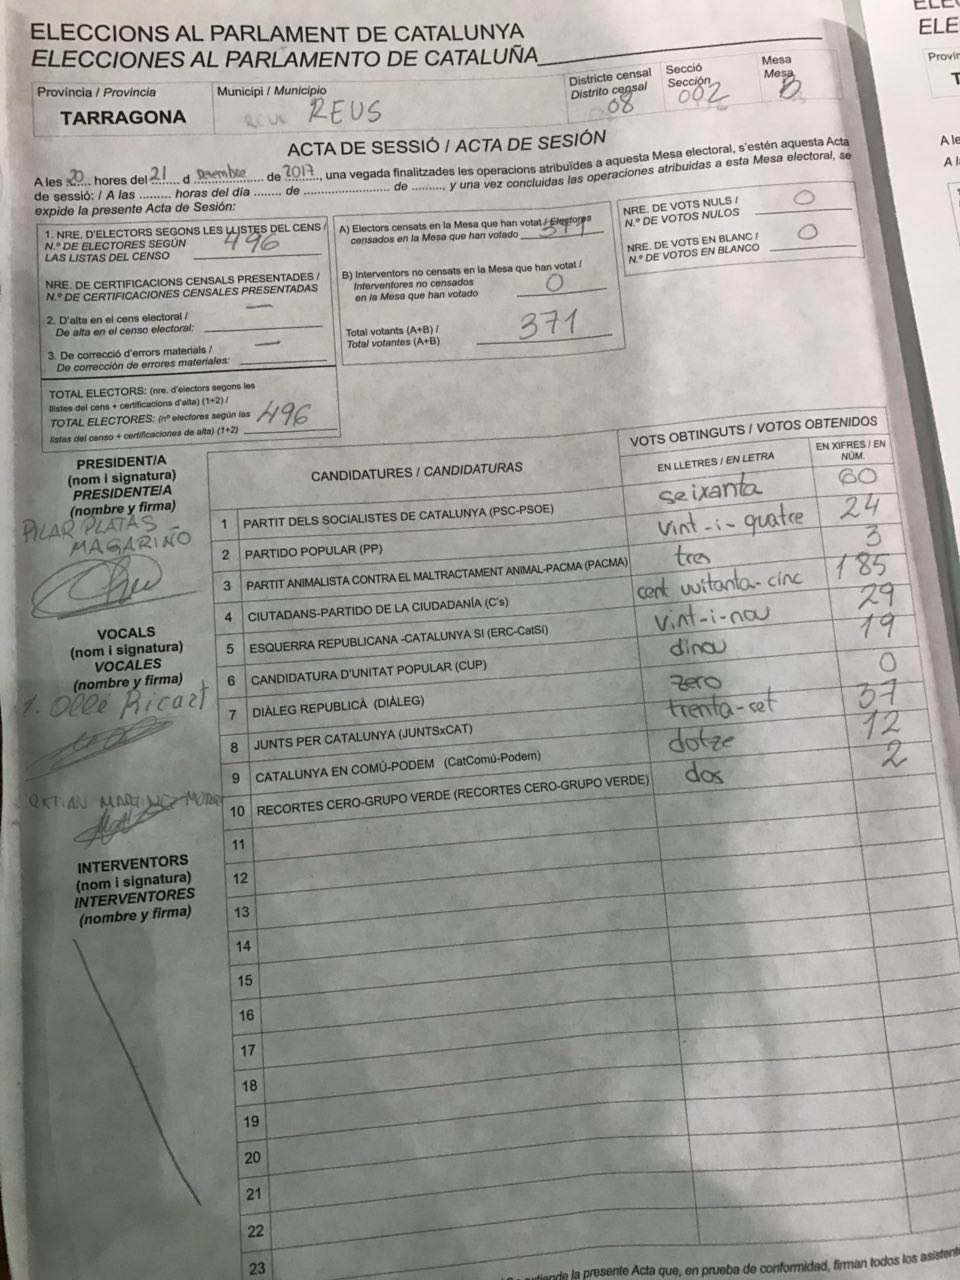 ELECCIONS AL PARLAMENT DE CATALUNYA
ELECCIONES AL PARLAMENTO DE CATALUÑA
Província / Provincia
TARRAGONA
Municipi / Municipio
REUS
Districte censal
Distrito censal
08
Secció
Sección
002
Mesa
Mesa
B
ACTA DE SESSIÓ / ACTA DE SESIÓN
A les 20 hores del 21 d Desembre de 2017, una vegada finalitzades les operacions atribuïdes a aquesta Mesa electoral, s'estén aquesta Acta
de sessió: / A las ......... horas del día ........ de .......................... de ........, y una vez concluidas las operaciones atribuidas a esta Mesa electoral, se
expide la presente Acta de Sesión:
1. NRE. D'ELECTORS SEGONS LES LLISTES DEL CENS /
N.º DE ELECTORES SEGÚN
LAS LISTAS DEL CENSO
496
NRE. DE CERTIFICACIONS CENSALS PRESENTADES /
N.º DE CERTIFICACIONES CENSALES PRESENTADAS
2. D'alta en el cens electoral /
De alta en el censo electoral:
—
3. De correcció d'errors materials /
De corrección de errores materiales:
—
TOTAL ELECTORS: (nre. d'electors segons les
llistes del cens + certificacions d'alta) (1+2) /
TOTAL ELECTORES: (nº electores según las
listas del censo + certificaciones de alta) (1+2)
496
A) Electors censats en la Mesa que han votat / Electores
censados en la Mesa que han votado
371
B) Interventors no censats en la Mesa que han votat /
Interventores no censados
en la Mesa que han votado
0
Total votants (A+B) /
Total votantes (A+B)
371
NRE. DE VOTS NULS /
N.º DE VOTOS NULOS
0
NRE. DE VOTS EN BLANC /
N.º DE VOTOS EN BLANCO
0
PRESIDENT/A
(nom i signatura)
PRESIDENTE/A
(nombre y firma)
PILAR PLATAS
MAGARIÑO
VOCALS
(nom i signatura)
VOCALES
(nombre y firma)
1. Ollé Ricart
INTERVENTORS
(nom i signatura)
INTERVENTORES
(nombre y firma)
CANDIDATURES / CANDIDATURAS
VOTS OBTINGUTS / VOTOS OBTENIDOS
EN LLETRES / EN LETRA
EN XIFRES / EN
NÚM.
1 PARTIT DELS SOCIALISTES DE CATALUNYA (PSC-PSOE) seixanta 60
2 PARTIDO POPULAR (PP) vint-i-quatre 24
3 PARTIT ANIMALISTA CONTRA EL MALTRACTAMENT ANIMAL-PACMA (PACMA) tres 3
4 CIUTADANS-PARTIDO DE LA CIUDADANÍA (C's) cent vuitanta-cinc 185
5 ESQUERRA REPUBLICANA -CATALUNYA SI (ERC-CatSí) vint-i-nou 29
6 CANDIDATURA D'UNITAT POPULAR (CUP) dinou 19
7 DIÀLEG REPUBLICÀ (DIÀLEG) zero 0
8 JUNTS PER CATALUNYA (JUNTSxCAT) trenta-set 37
9 CATALUNYA EN COMÚ-PODEM (CatComú-Podem) dotze 12
10 RECORTES CERO-GRUPO VERDE (RECORTES CERO-GRUPO VERDE) dos 2
11
12
13
14
15
16
17
18
19
20
21
22
23
la presente Acta que, en prueba de conformidad, firman todos los